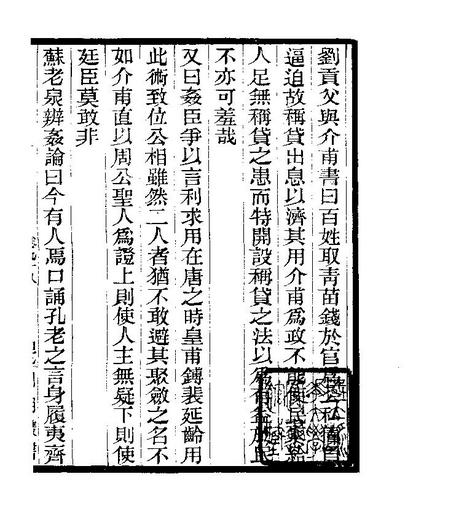 劉貢父與介甫書曰百姓取青苗錢於官
逼迫故稱貸出息以濟其用介甫爲政不能使民家給
人足無稱貸之患而特開設稱貸之法以爲有益於民
不亦可羞哉
又曰姦臣爭以言利求用在唐之時皇甫鎛裴延齡用
此術致位公相雖然二人者猶不敢避其聚斂之名不
如介甫直以周公聖人爲證上則使人主無疑下則使
廷臣莫敢非
蘇老泉辨姦論曰今有人焉口誦孔老之言身履夷齊